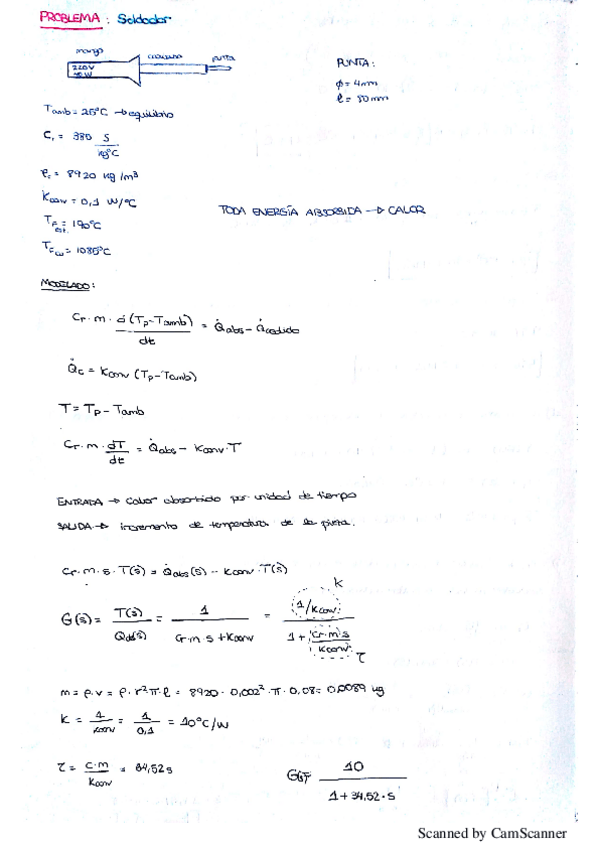 PROBLEMA: Soldador
mango
calentador
punta
220V
PUNTA:
ϕ = 4mm
ℓ = 80mm
Tamb = 25°C → equilibrio
TODA ENERGÍA ABSORBIDA → CALOR
ρc = 8920 kg/m³
Kconv = 0,1 W/°C
= 190°C
= 1085°C
MODELADO:
Cr · m · d(Tp - Tamb)/dt = Q̇abs - Q̇cedido
Q̇c = Kconv (Tp - Tamb)
T = Tp - Tamb
Cr · m · dT/dt = Q̇abs - Kconv · T
ENTRADA → Calor absorbido por unidad de tiempo
SALIDA → incremento de temperatura de la punta.
Cr · m · s · T(s) = Q̇abs(s) - Kconv · T(s)
K
G(s) = T(s)/Qabs(s) = 1/(Cr · m · s + Kconv) = (1/Kconv)/(1 + Cr·m·s/Kconv)
τ
m = ρ · v = ρ · r² π · ℓ = 8920 · 0,002² · π · 0,08 = 0,0089 kg
K = 1/Kconv = 1/0,1 = 10°C/W
τ = C·m/Kconv = 34,52 s
G(s) = 10/(1 + 34,52 · s)
Scanned by CamScanner